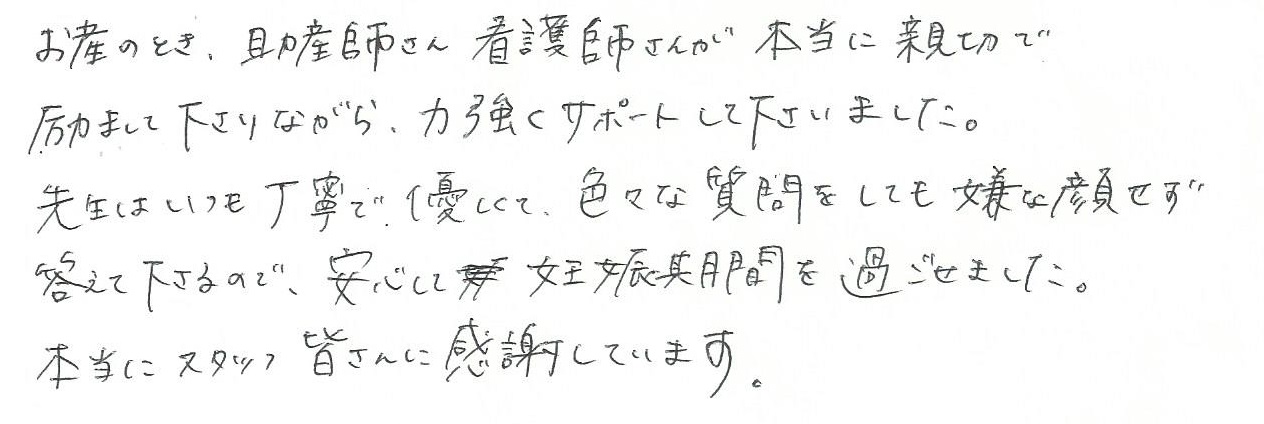 お産のとき、助産師さん 看護師さんが 本当に 親切で
励まして下さりながら、力強くサポートして下さいました。
先生はいつも丁寧で優しくて、色々な質問をしても嫌な顔せず
答えて下さるので、安心して 妊娠期間を過ごせました。
本当にスタッフ皆さんに感謝しています。